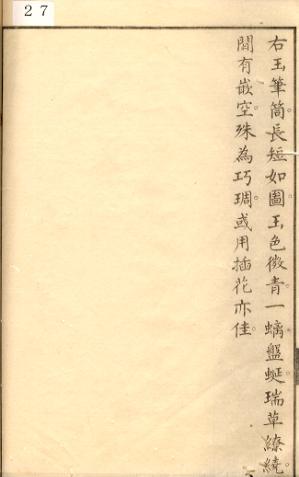 27
右玉筆筒。長短如圖。玉色微青。一螭盤蜒。瑞草繚繞。
間有嵌空。殊為巧琱。或用插花亦佳。